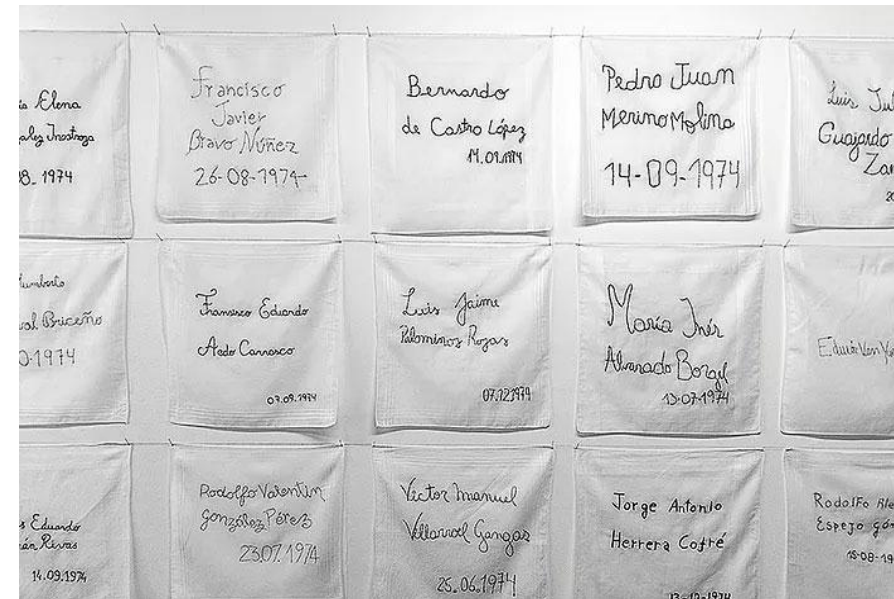 Elena
Inostroza
1974
Francisco
Javier
Bravo Núñez
26-08-1974
Bernardo
de Castro López
14.09.1974
Pedro Juan
Merino Molina
14-09-1974
Luis
Guajardo
Humberto
Briceño
1974
Francisco Eduardo
Aedo Carrasco
07.09.1974
Luis Jaime
Palominos Rojas
07.12.1974
María Inés
Alvarado Borgel
15-07-1974
Eduardo
Rivas
14.09.1974
Rodolfo Valentin
González Pérez
23.07.1974
Victor Manuel
Villarroel Gangas
25.06.1974
Jorge Antonio
Herrera Cofré
13-12-1974
Rodolfo
Espejo
15-08-